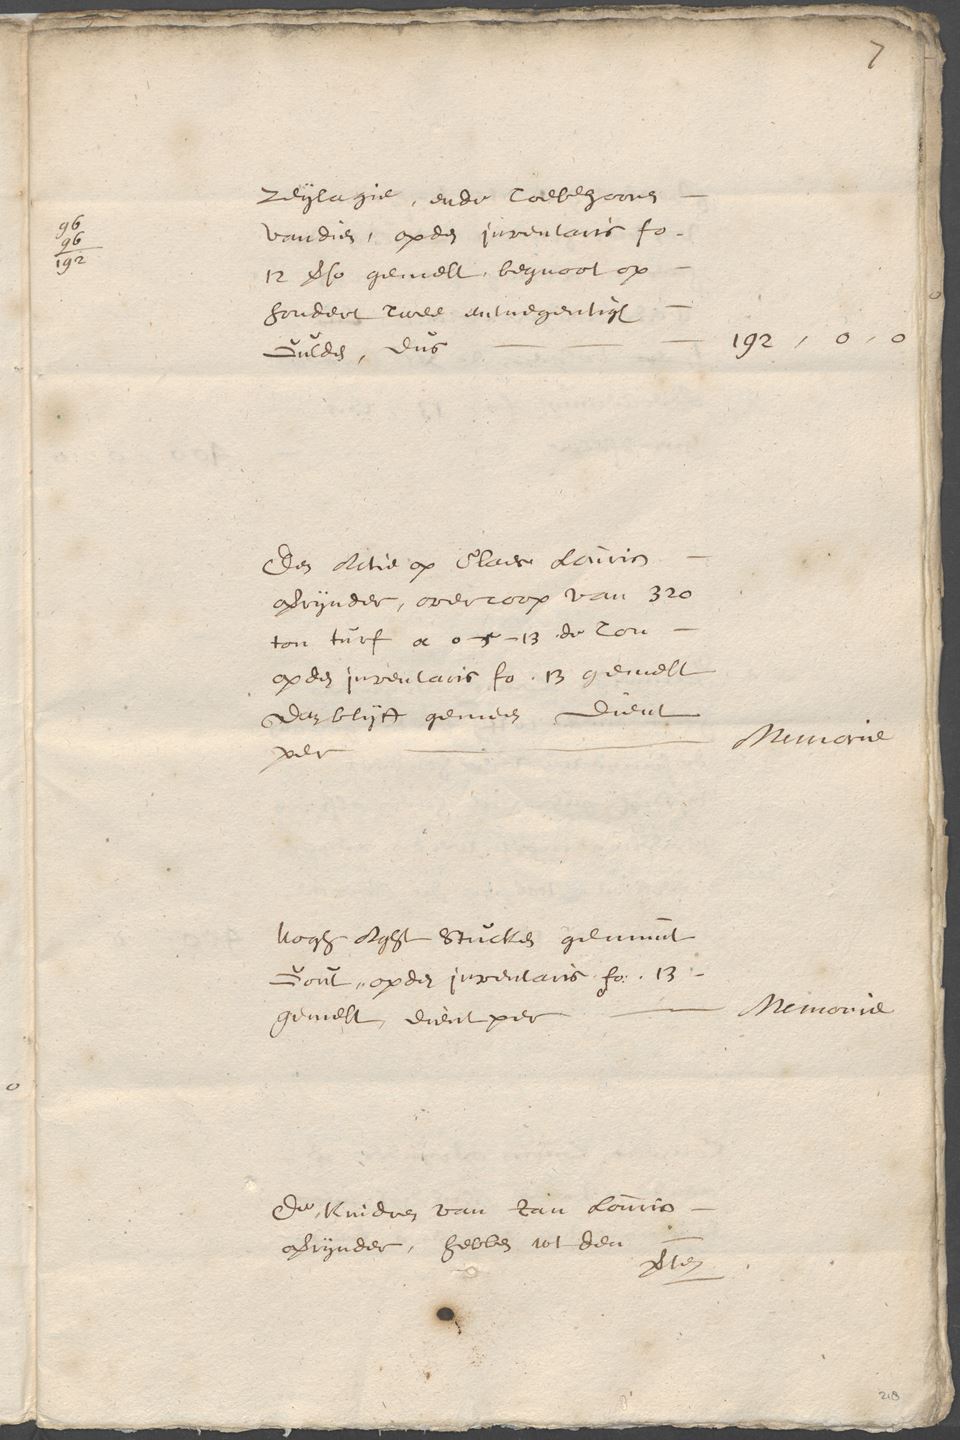 7
96
96
192
Zeijlagie, ende Toebehooren
van dien, op den inventaris fo.
12 gemelt, begroot op
hondert twee entnegentigh
Gulden, dus 192, 0, 0
Den Actie op Claes Louris
Strijnder, overcoop van 320
ton turf a 0-5-13 de Ton
op den inventaris fo. 13 gemelt
Dan blijft gemeen dient
per Memorie
Nogh Aght Stucken gemunt
Gout, op den inventaris fo. 13
gemelt, dient per Memorie
De Kinders van Jan Louris
Strijnder, hebben tot den
218